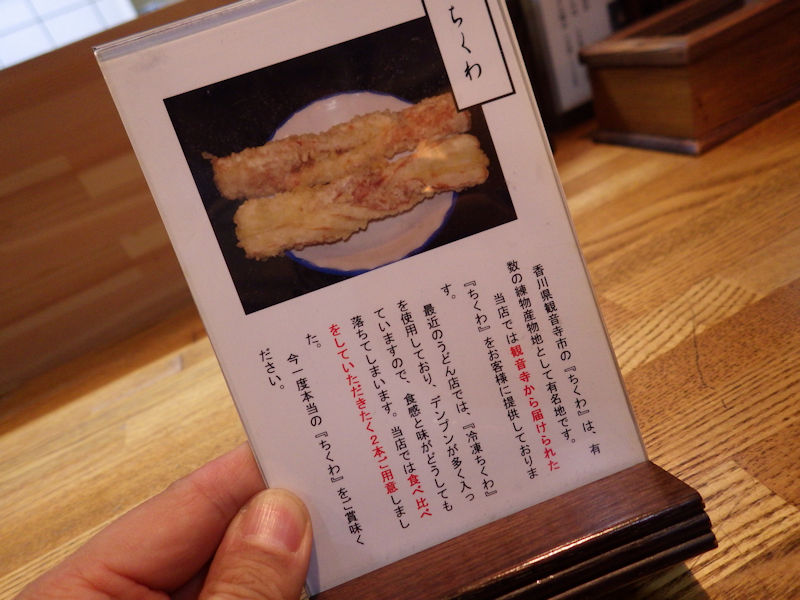 ちくわ
香川県観音寺市の『ちくわ』は、有
数の練物産物地として有名地です。
当店では観音寺から届けられた
『ちくわ』をお客様に提供しておりま
す。
最近のうどん店では、『冷凍ちくわ』
を使用しており、デンプンが多く入っ
ていますので、食感と味がどうしても
落ちてしまいます。当店では食べ比べ
をしていただきたく2本ご用意しまし
た。
今一度本当の『ちくわ』をご賞味く
ださい。